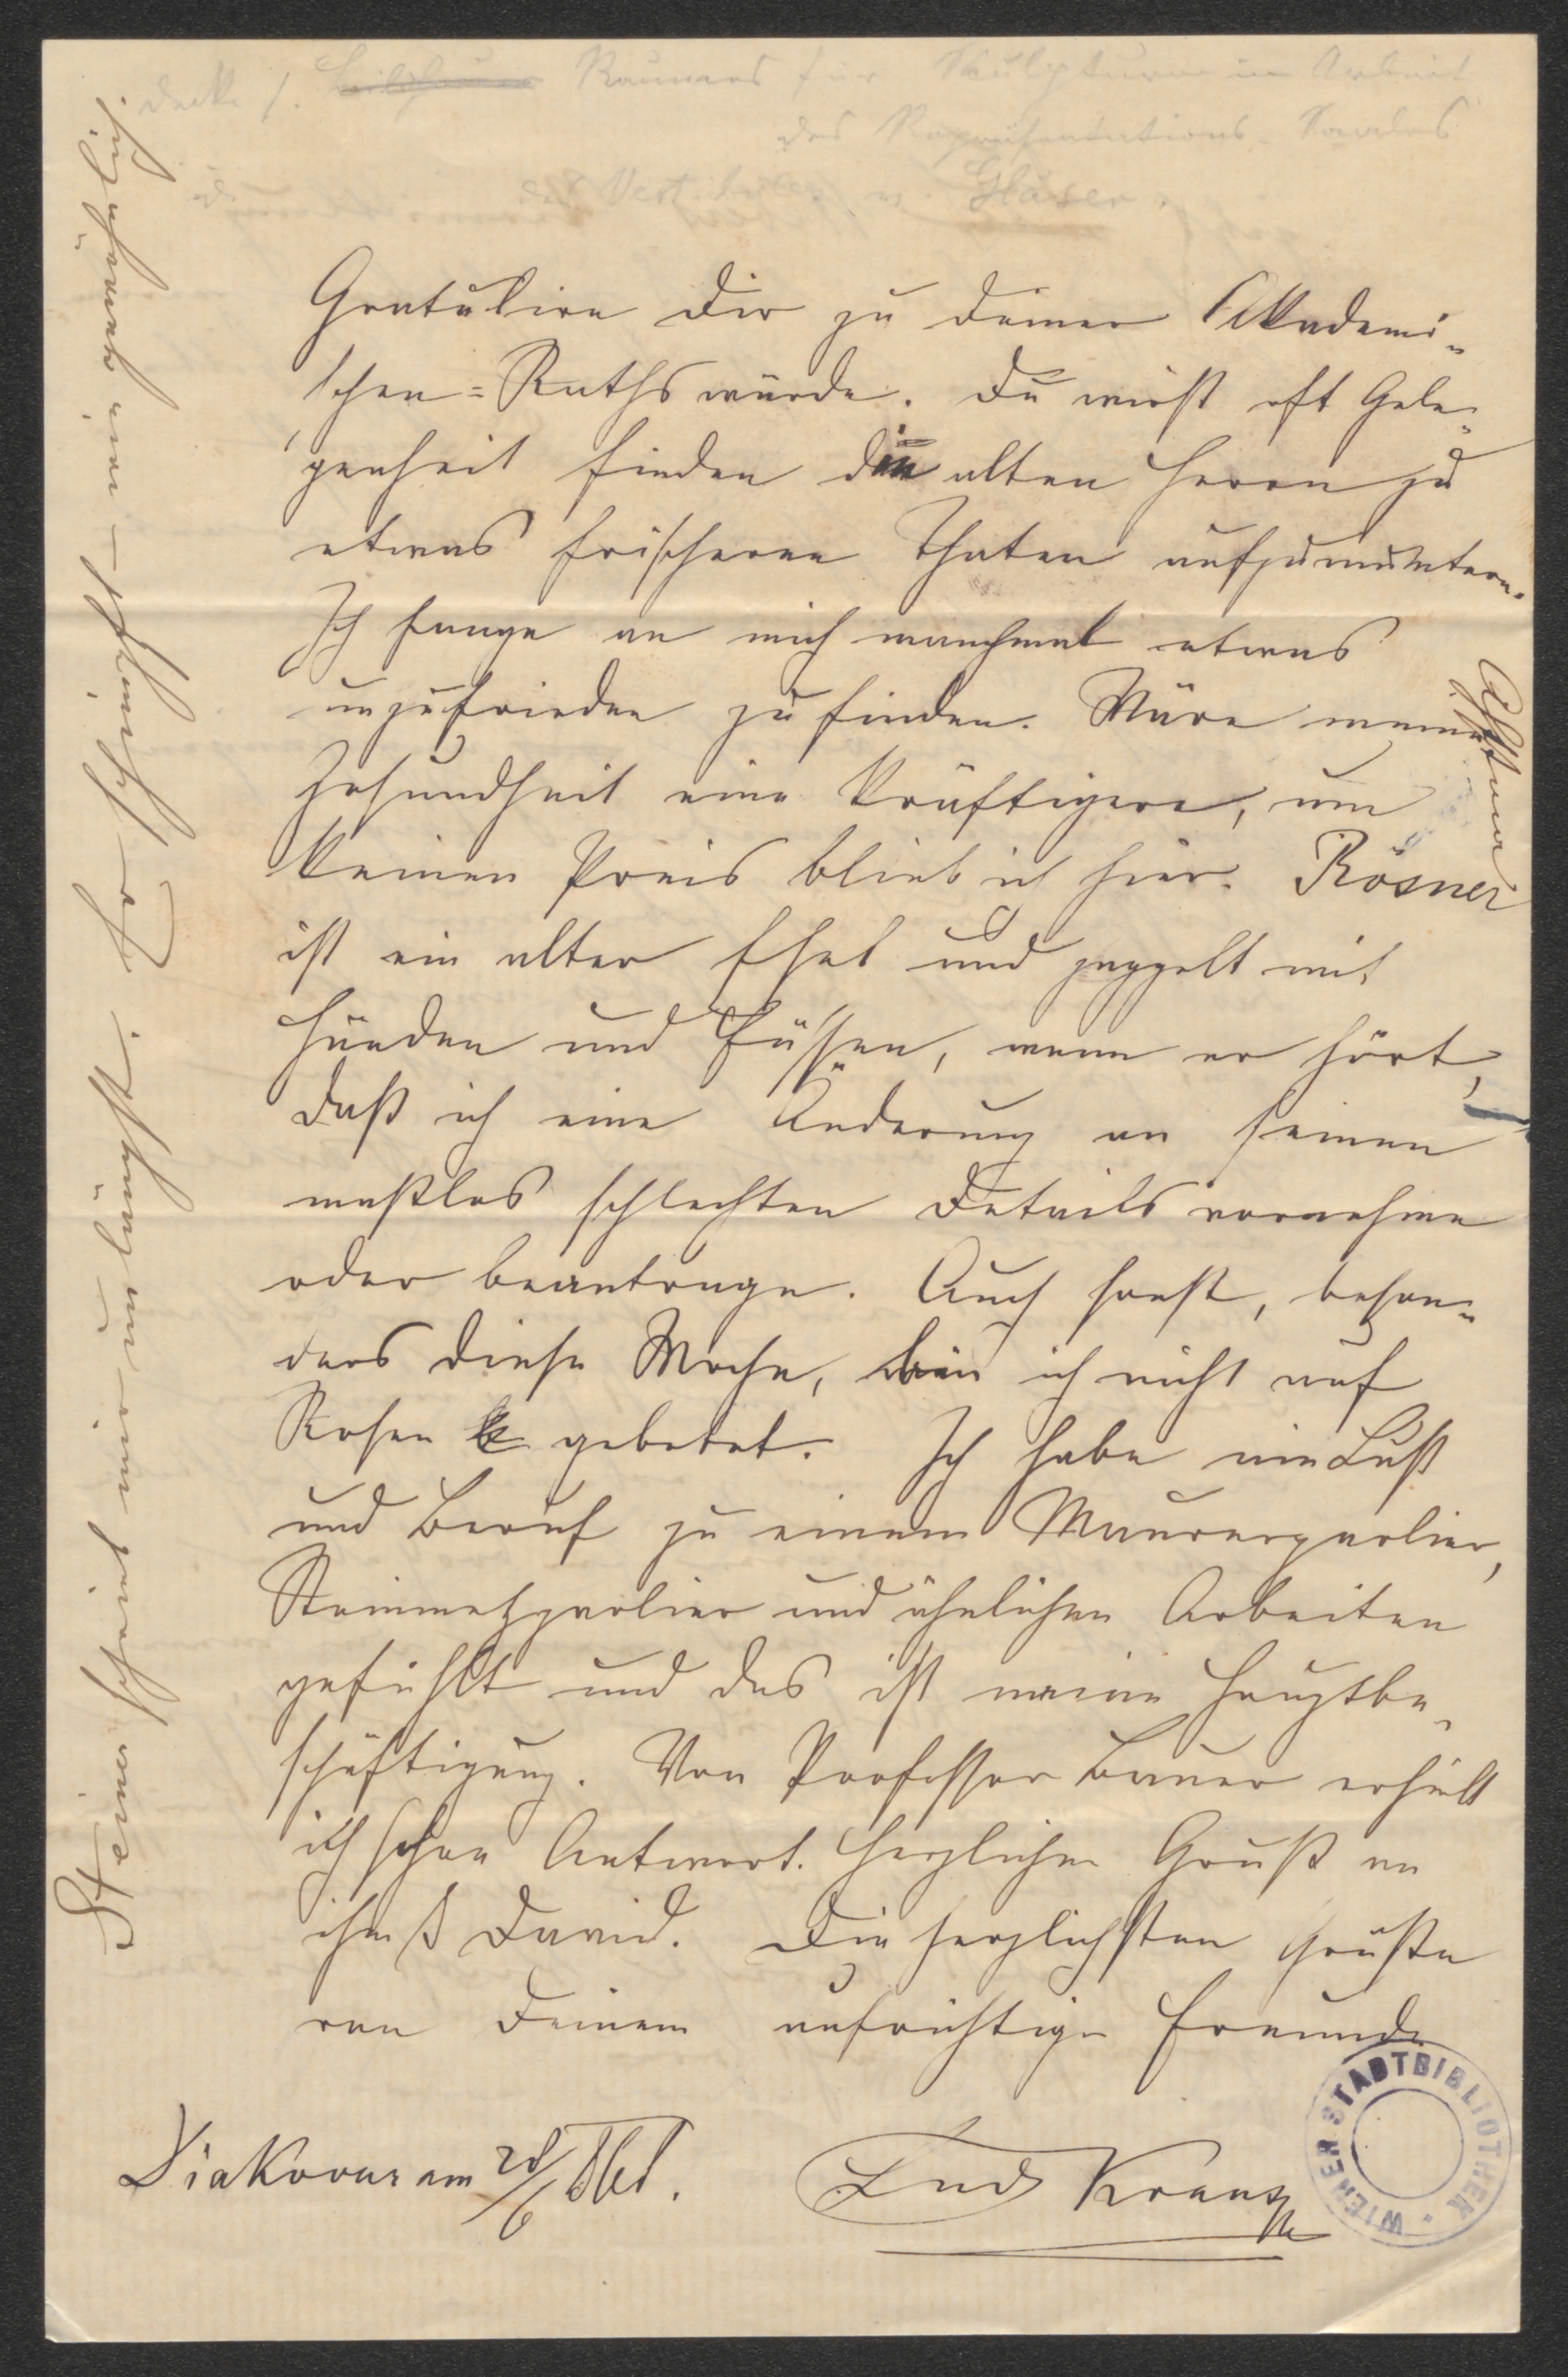 Räumers für Skulpturen in Arbeit
des Repräsentations-Saales
des Vestibules, u. Gläser.
Gratulire Dir zu deiner Akademi-
schen=Rathswürde. Du wirst oft Gele-
genheit finden die alten Herrn zu
etwas frischeren Thaten aufzumuntern.
Ich fange an mich manchmal etwas
unzufrieden zu finden. Wäre meine
Gesundheit eine kräftigere, um
keinen Preis blieb ich hier. Rösner
ist ein alter Esel und zappelt mit
Händen und Füssen, wenn er hört,
daß ich eine Änderung an seinen
maßlos schlechten Details vornehme
oder beantrage. Auch sonst, beson-
ders diese Woche, bin ich nicht auf
Rosen gebetet. Ich habe nie Lust
und Beruf zu einem Maurerparlier,
Steinmetzparlier und ähnlichen Arbeiten
gefühlt und das ist meine Hauptbe-
schäftigung. Von Professor Bauer erhielt
ich schon Antwort. Herzlichen Gruß an
ihn & David. Die herzlichsten Grüße
von Deinem aufrichtigen Freunde
Diakovar am 28/6 868.
Lud Kranz
WIENER STADTBIBLIOTHEK